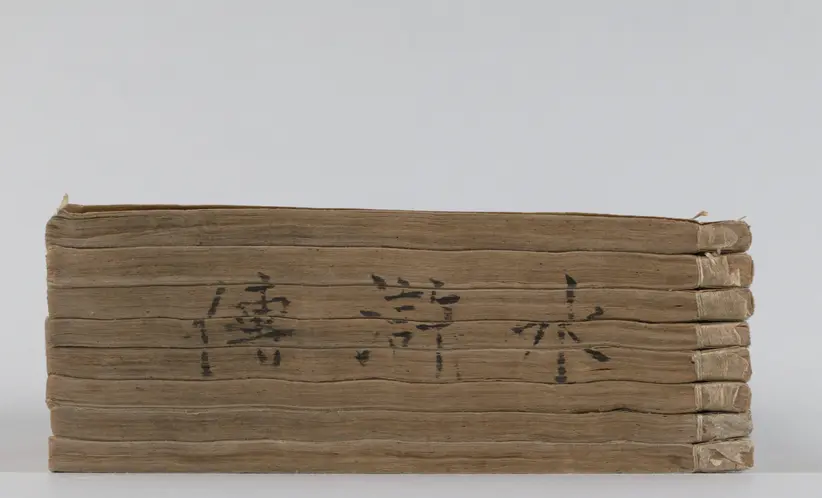 水滸傳